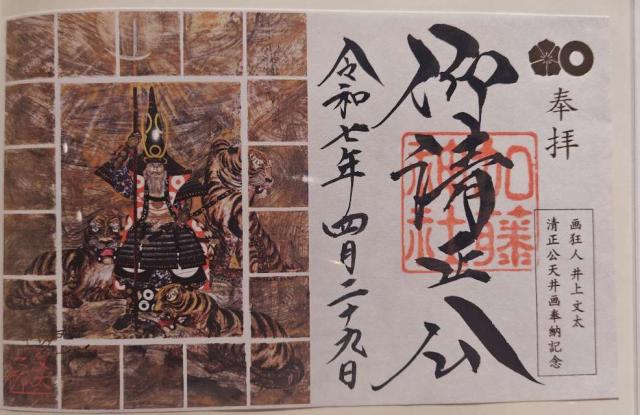 奉拝
仰清正公
加藤
神社
令和七年四月二十九日
画狂人 井上文太
清正公天井画奉納記念